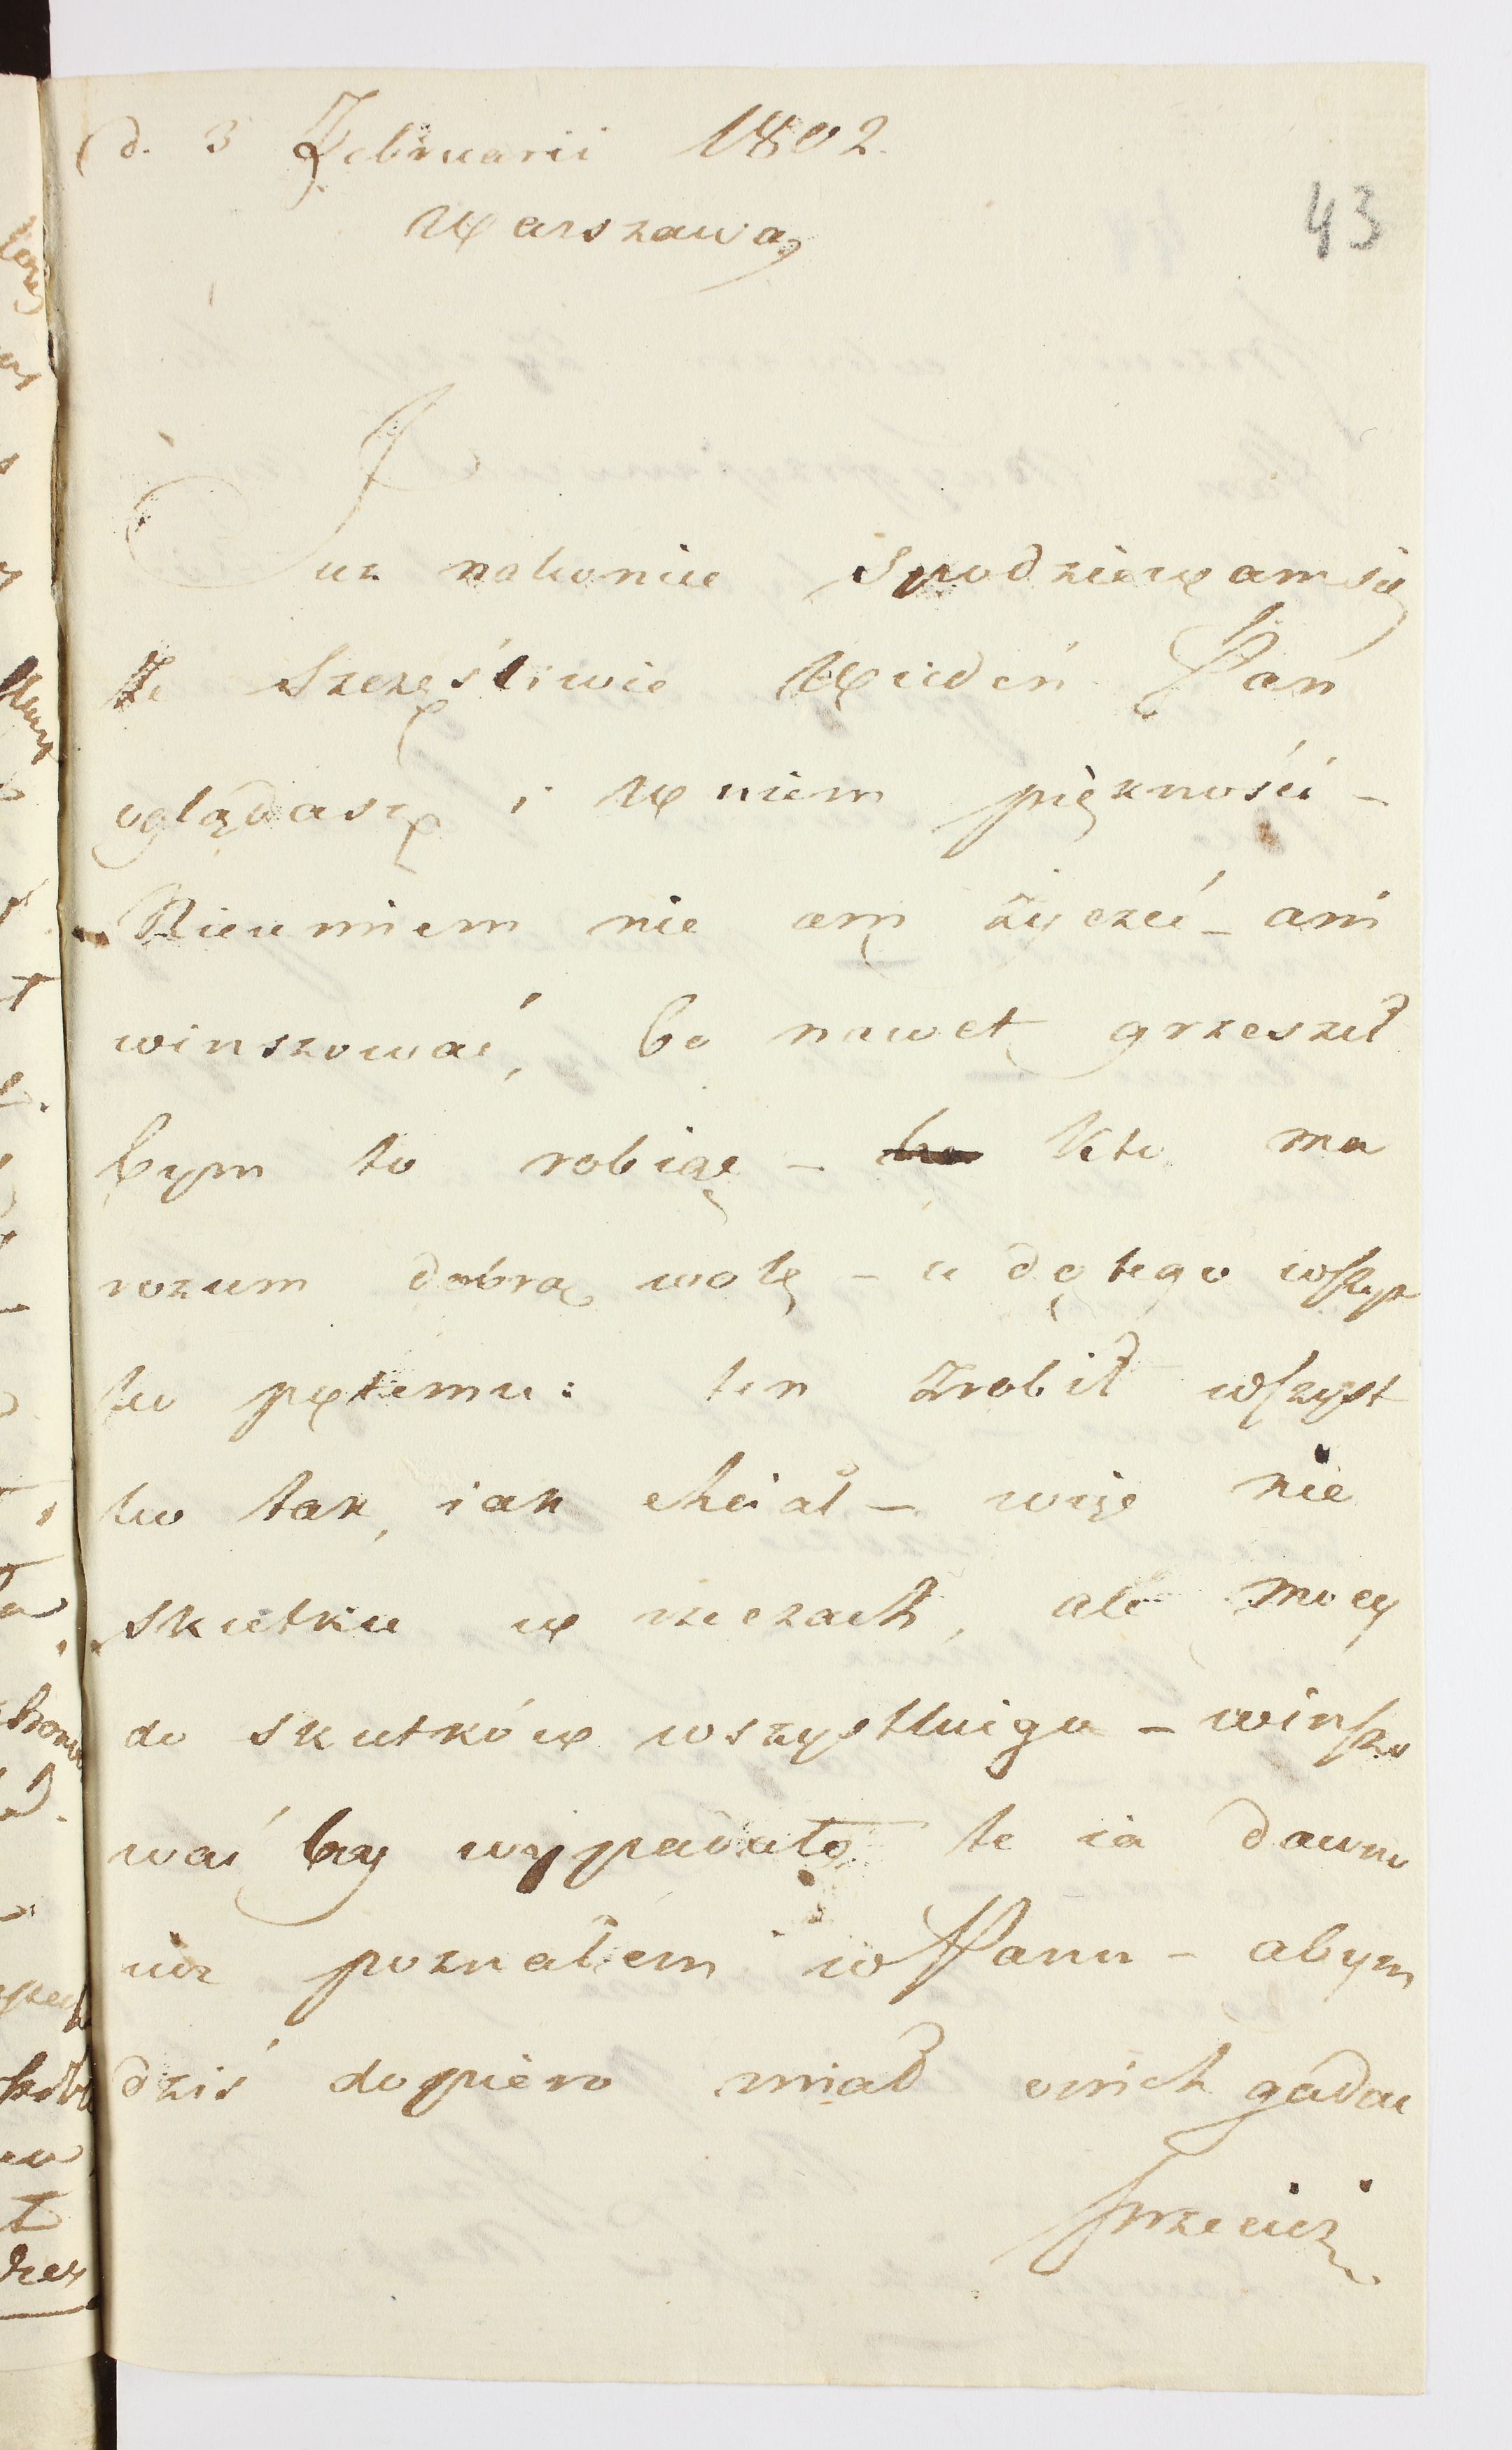 d. 3 Februarii 1802.
Warszawa
43
Juz nakoniec spodziewam się
Ze Szczęśliwie Wiedeń Pan
oglądasz i W niem pięknośći -
Nieumiem nic em życzć - ani
winszować, bo nawet grzeszył
bym to robiąc - Kto ma
rozum dobrą wolę - a do tego wszys
ko potemu: ten zrobił wszyst
ko tak, iak chciał - więc nie
skutku w rzeczach, ale mocy
do skutków wszystkiego - winszo
wać by wypadało te ia dawno
iuz poznałem w Panu - abym
dziś dopiero miał onich gadać
Przeciez